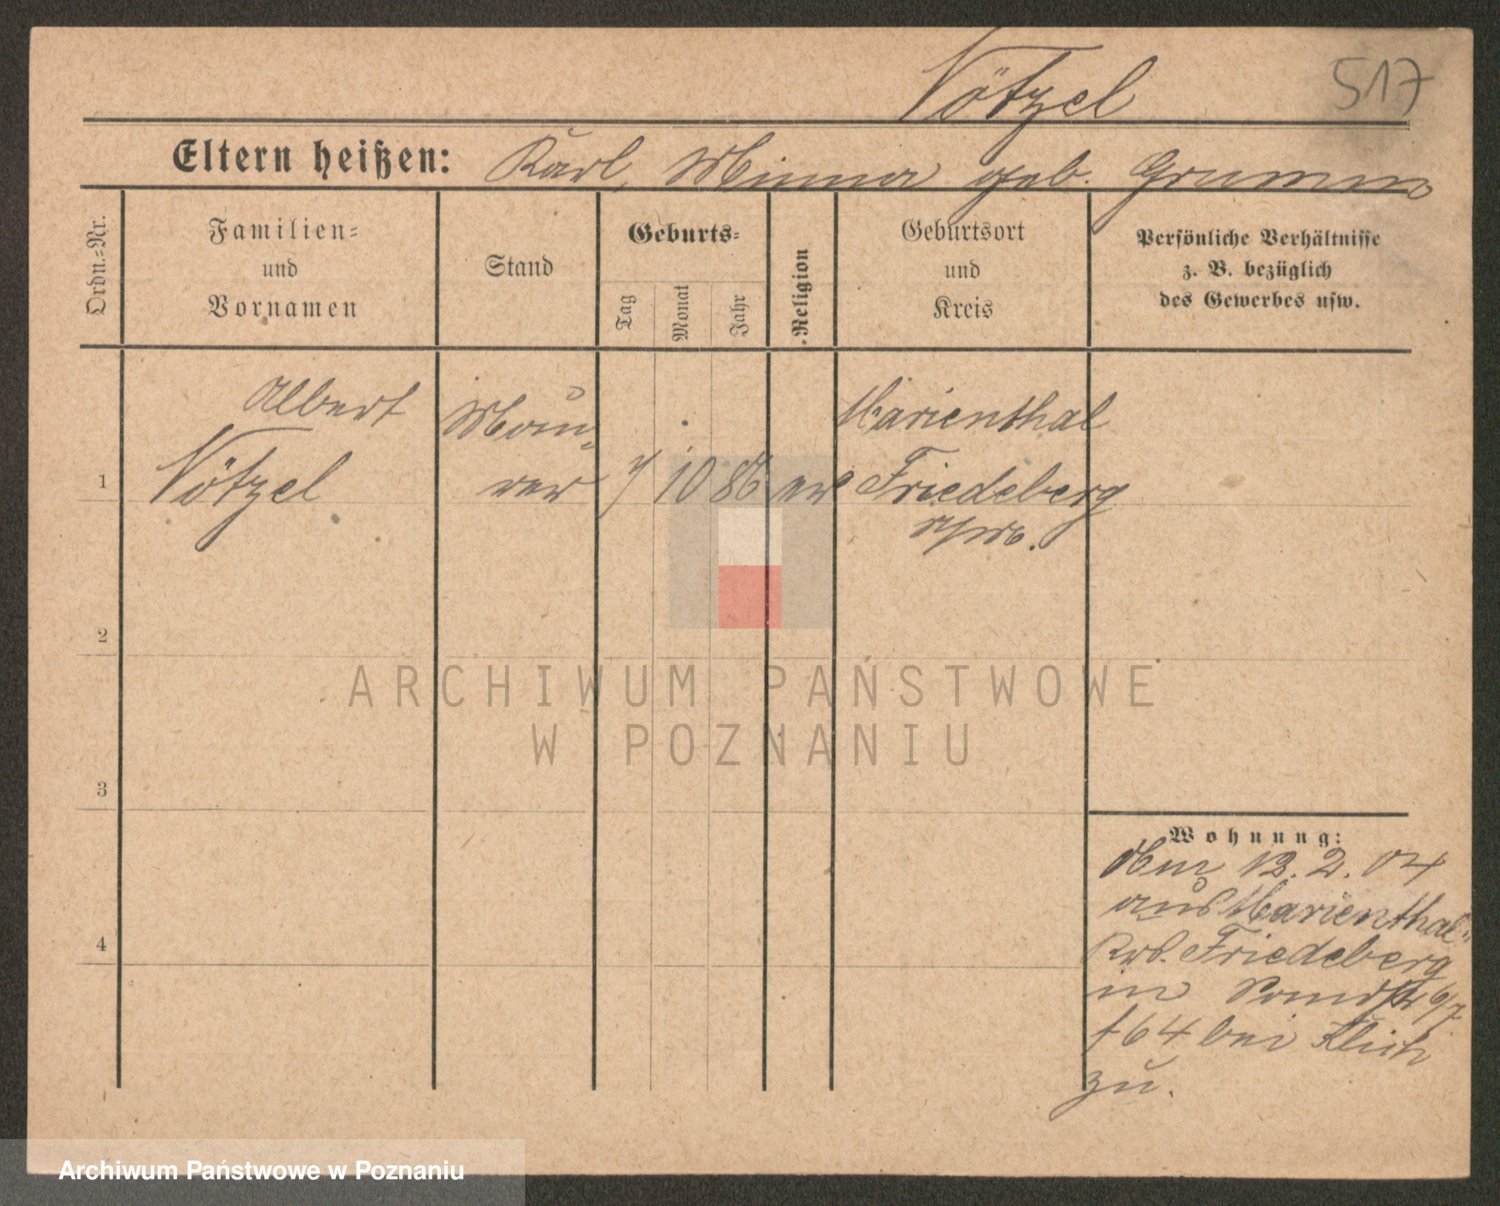 Nötzel
517
Eltern heißen: Karl, Minna geb. Grumm
Ordn.-Nr.
Familien-
und
Vornamen
Stand
Geburts-
Tag
Monat
Jahr
Religion
Geburtsort
und
Kreis
Persönliche Verhältnisse
z. B. bezüglich
des Gewerbes usw.
Albert
Nötzel
Mau-
rer
1
7 10 86 ev
Marienthal
Friedeberg
2
3
4
Wohnung:
Am 12.2.04
aus Marienthal
Krs. Friedeberg
in
64 bei
zu.
ARCHIWUM PAŃSTWOWE
W POZNANIU
Archiwum Państwowe w Poznaniu